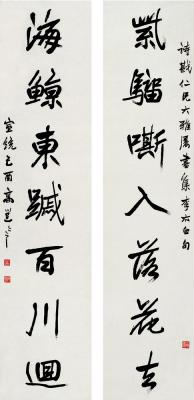 詩戡仁兄大雅屬書集李太白句
紫騮嘶入落花去
海鯨東蹙百川迴
宣統己酉高邕之